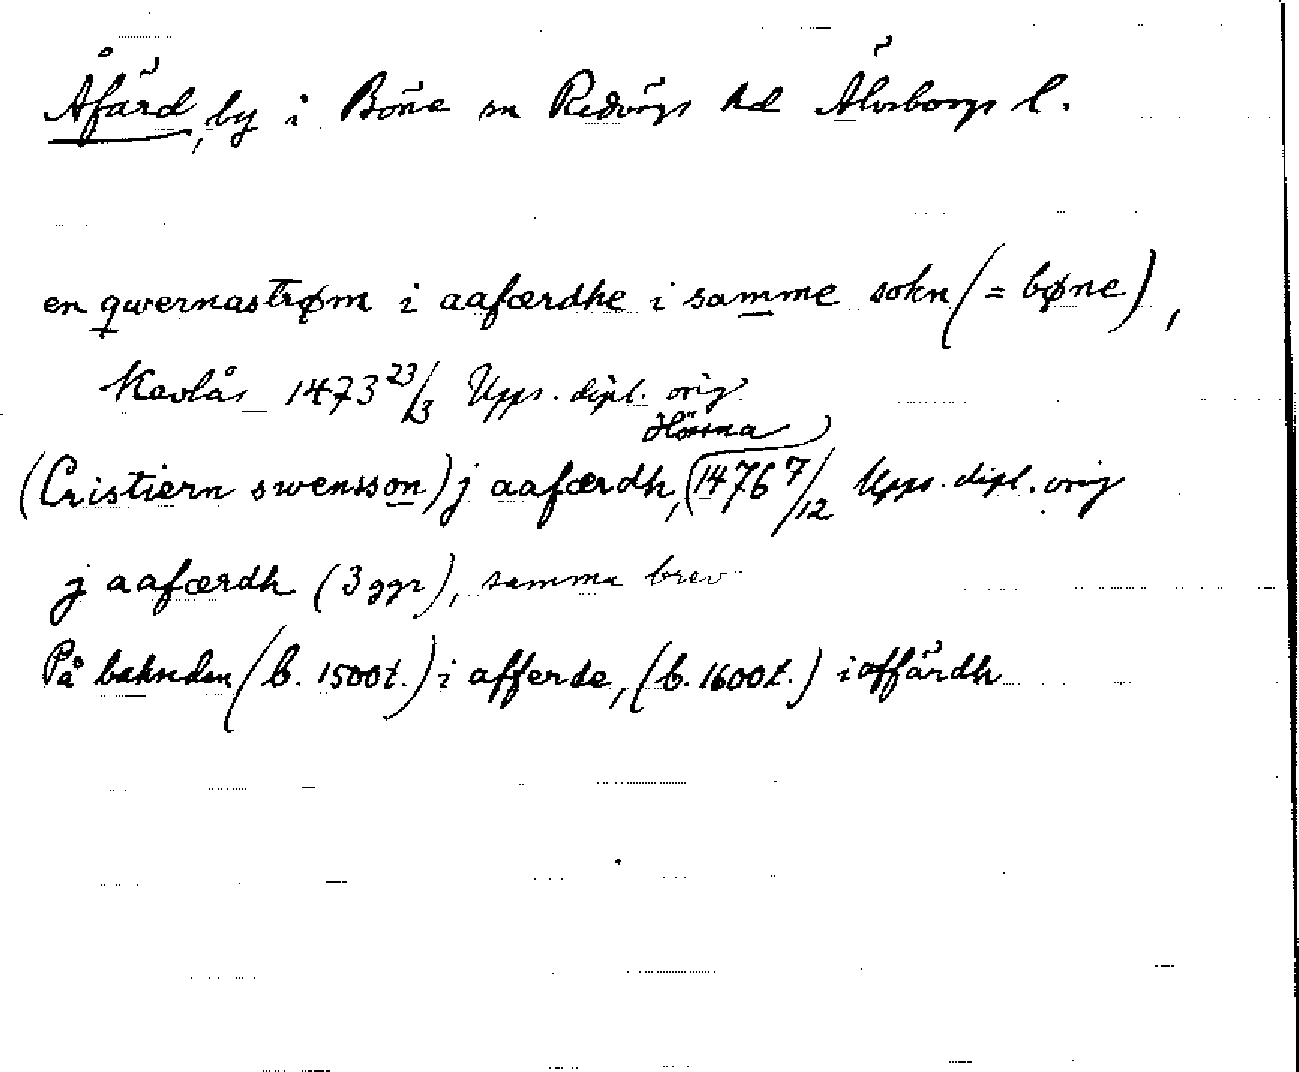 Åfärd, by i Böne sn Redvägs hd Älvsborgs l.
en qwernastrøm i aafærdhe i samme sokn (= bøne),
Kavlås 1473 23/3 Upps. dipl. orig
Hösna
(Cristiern swensson) j aafærdh, (1476 7/12 Upps. dipl. orig
j aafærdh (3 ggr), samma brev
På baksidan (b. 1500t.) i afferde, (b. 1600t.) i affärdh